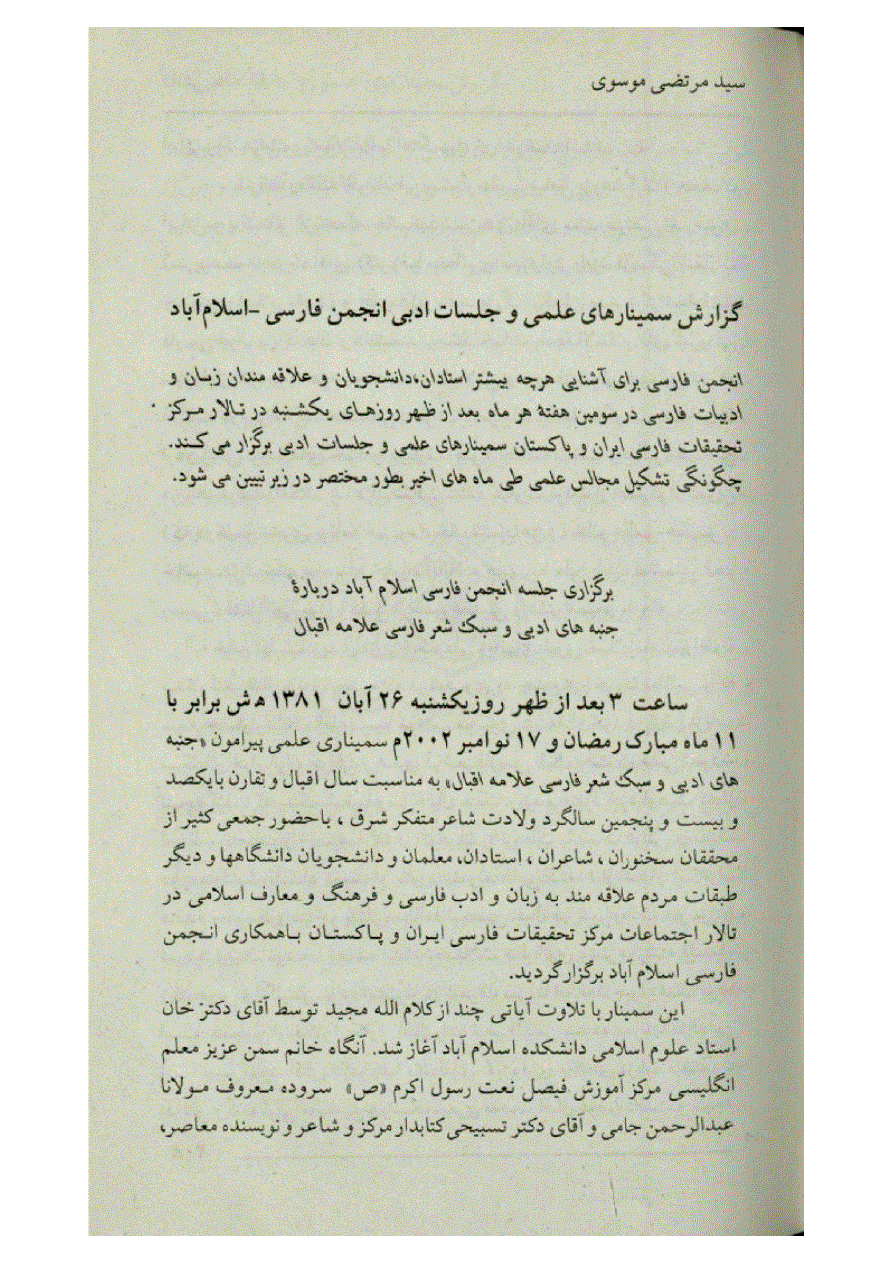 سید مرتضی موسوی
گزارش سمینارهای علمی و جلسات ادبی انجمن فارسی -اسلام‌آباد
انجمن فارسی برای آشنایی هرچه بیشتر استادان،دانشجویان و علاقه مندان زبان و
ادبیات فارسی در سومین هفتهٔ هر ماه بعد از ظهر روزهای یکشنبه در تالار مرکز
تحقیقات فارسی ایران و پاکستان سمینارهای علمی و جلسات ادبی برگزار می کند.
چگونگی تشکیل مجالس علمی طی ماه های اخیر بطور مختصر در زیر تبیین می شود.
برگزاری جلسه انجمن فارسی اسلام آباد دربارهٔ
جنبه های ادبی و سبک شعر فارسی علامه اقبال
ساعت ۳ بعد از ظهر روز یکشنبه ۲۶ آبان ۱۳۸۱ ه ش برابر با
۱۱ ماه مبارک رمضان و ۱۷ نوامبر ۲۰۰۲م سمیناری علمی پیرامون «جنبه
های ادبی و سبک شعر فارسی علامه اقبال» به مناسبت سال اقبال و تقارن بایکصد
و بیست و پنجمین سالگرد ولادت شاعر متفکر شرق ، باحضور جمعی کثیر از
محققان سخنوران ، شاعران ، استادان، معلمان و دانشجویان دانشگاهها و دیگر
طبقات مردم علاقه مند به زبان و ادب فارسی و فرهنگ و معارف اسلامی در
تالار اجتماعات مرکز تحقیقات فارسی ایران و پاکستان باهمکاری انجمن
فارسی اسلام آباد برگزار گردید.
این سمینار با تلاوت آیاتی چند از کلام الله مجید توسط آقای دکتر خان
استاد علوم اسلامی دانشکده اسلام آباد آغاز شد. آنگاه خانم سمن عزیز معلم
انگلیسی مرکز آموزش فیصل نعت رسول اکرم «ص» سروده معروف مولانا
عبدالرحمن جامی و آقای دکتر تسبیحی کتابدار مرکز و شاعر و نویسنده معاصر،